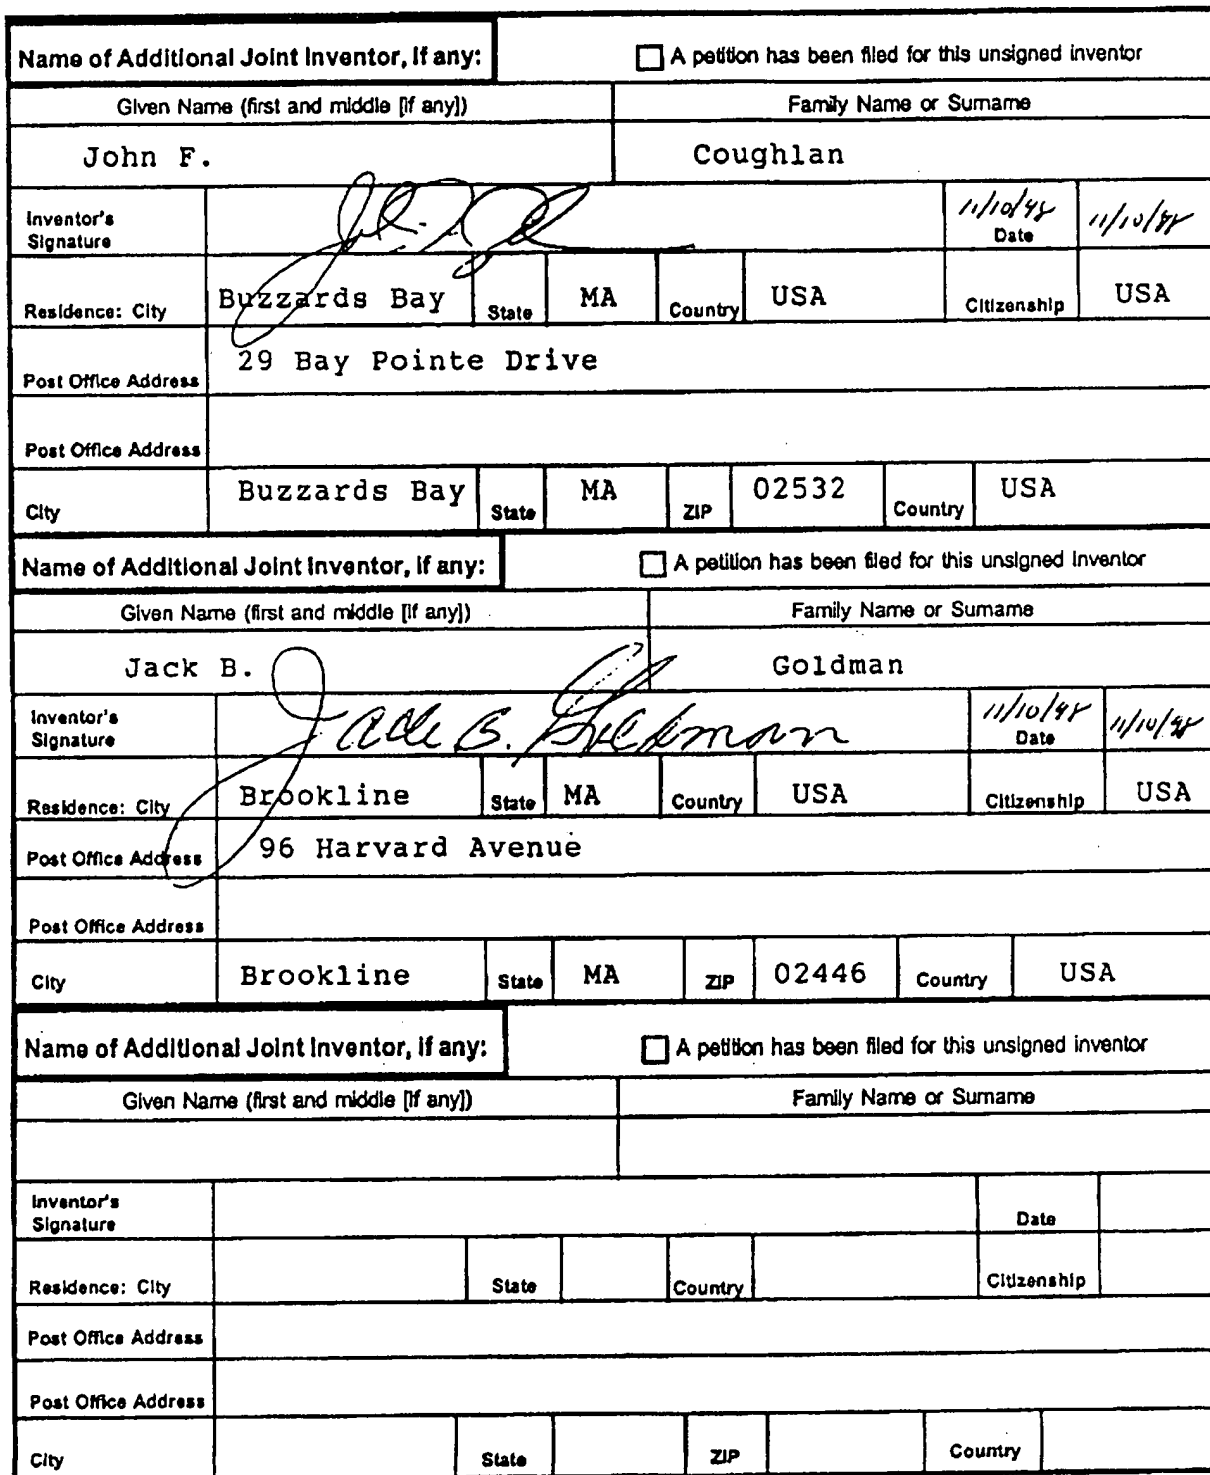 Name of Additional Joint Inventor, if any: A petition has been filed for this unsigned inventor
Given Name (first and middle [if any]) Family Name or Surname
John F. Coughlan
Inventor's Signature 11/10/98 Date 11/10/98
Residence: City Buzzards Bay State MA Country USA Citizenship USA
Post Office Address 29 Bay Pointe Drive
Post Office Address
City Buzzards Bay State MA ZIP 02532 Country USA
Name of Additional Joint Inventor, if any: A petition has been filed for this unsigned inventor
Given Name (first and middle [if any]) Family Name or Surname
Jack B. Goldman
Inventor's Signature Jack B. Goldman 11/10/98 Date 11/10/98
Residence: City Brookline State MA Country USA Citizenship USA
Post Office Address 96 Harvard Avenue
Post Office Address
City Brookline State MA ZIP 02446 Country USA
Name of Additional Joint Inventor, if any: A petition has been filed for this unsigned inventor
Given Name (first and middle [if any]) Family Name or Surname
Inventor's Signature Date
Residence: City State Country Citizenship
Post Office Address
Post Office Address
City State ZIP Country